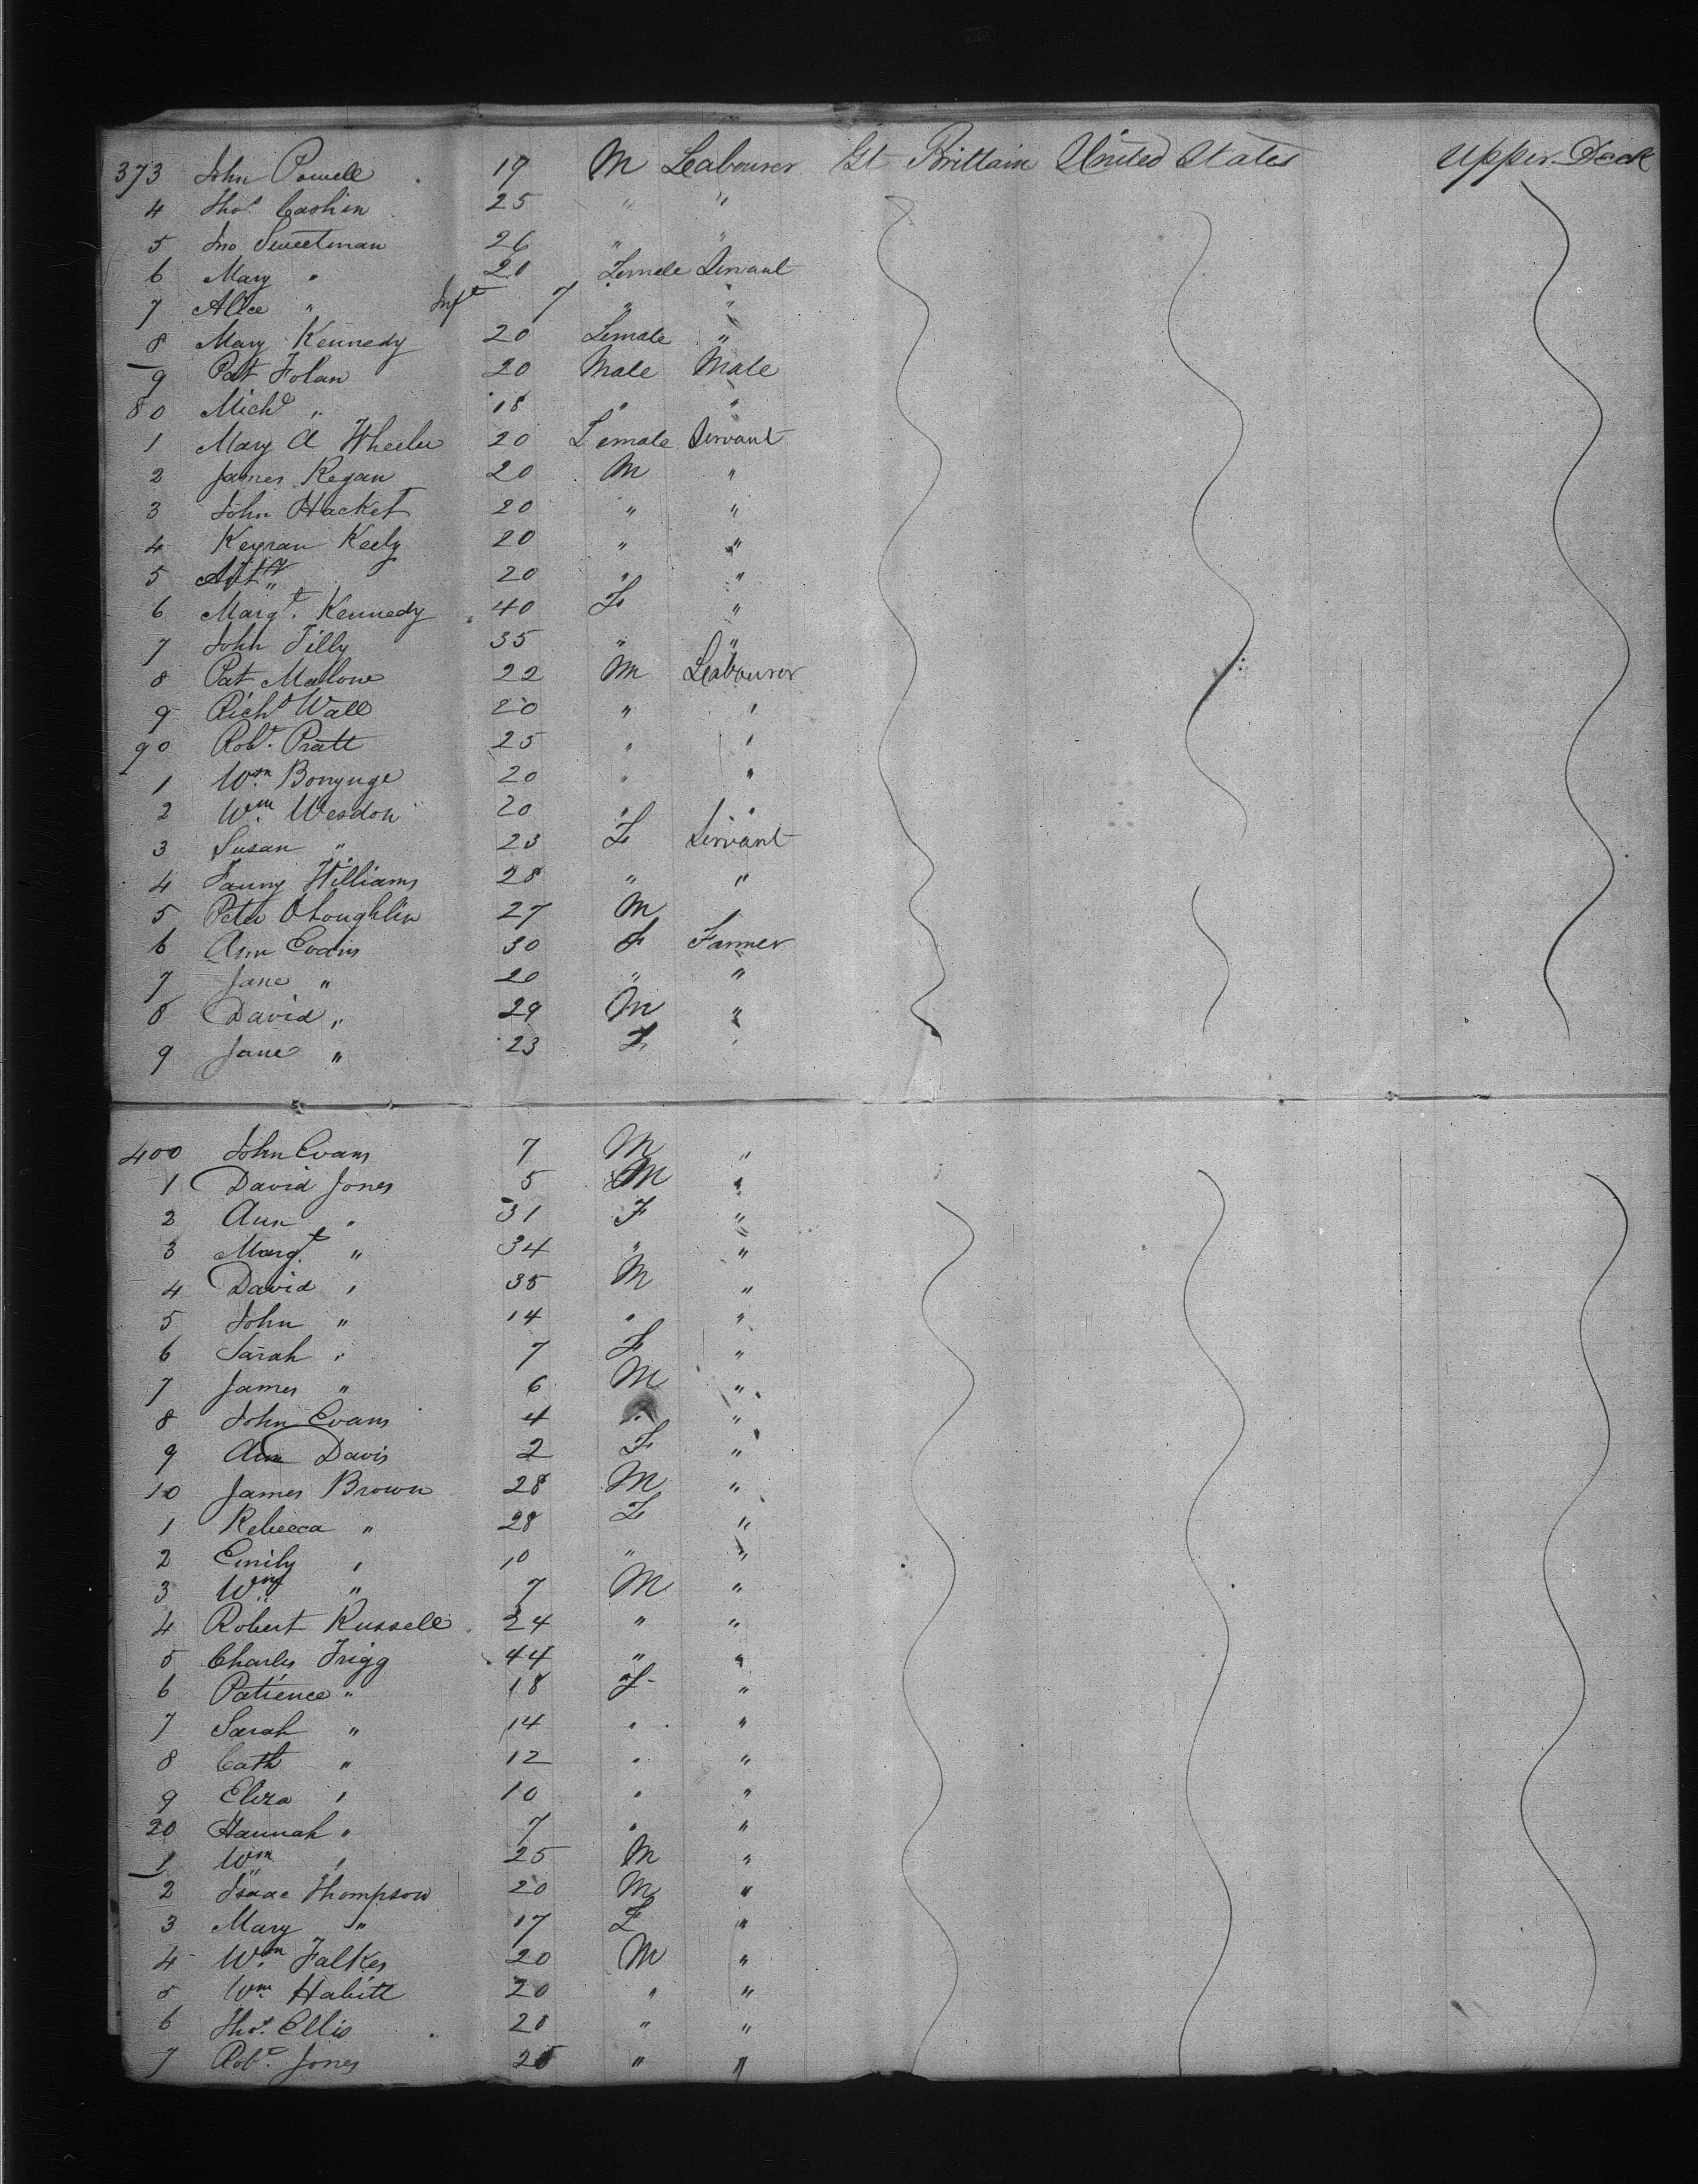 373 John Powell 19 M Labourer Gt Brittain United States Upper Deck
4 Thos. Cashin 25 " "
5 Jno Sweetman 26 " "
6 Mary " 20 Female Servant
7 Alice " Inft 7 " "
8 Mary Kennedy 20 Female "
9 Pat Folan 20 Male Male
80 Michl " 18 " "
1 Mary A Wheeler 20 Female Servant
2 James Regan 20 M "
3 John Hacket 20 " "
4 Keyran Keely 20 " "
5 " 20 " "
6 Margt. Kennedy 40 F "
7 John Tilly 35 " "
8 Pat Malone 22 M Labourer
9 Richd Wall 20 " "
90 Robt. Pratt 25 " "
1 Wm Bonynge 20 " "
2 Wm Wesdon 20 " "
3 Susan " 23 F Servant
4 Fanny Williams 28 " "
5 Peter OLoughlin 27 M "
6 Ann Evans 30 F Farmer
7 Jane " 20 " "
8 David " 29 M "
9 Jane " 23 F "
400 John Evans 7 M "
1 David Jones 5 M "
2 Ann " 31 F "
3 Margt. " 34 " "
4 David " 35 M "
5 John " 14 " "
6 Sarah " 7 F "
7 James " 6 M "
8 John Evans 4 " "
9 Ann Davis 2 F "
10 James Brown 28 M "
1 Rebecca " 28 F "
2 Emily " 10 " "
3 Wm " 7 M "
4 Robert Russell 24 " "
5 Charles Trigg 44 " "
6 Patience " 18 F "
7 Sarah " 14 " "
8 Cath " 12 " "
9 Eliza " 10 " "
20 Hannah " 7 " "
1 Wm " 25 M "
2 Isaac Thompson 20 M "
3 Mary " 17 F "
4 Wm Falkes 20 M "
5 Wm Habitt 20 " "
6 Thos. Ellis 20 " "
7 Robt. Jones 25 " "